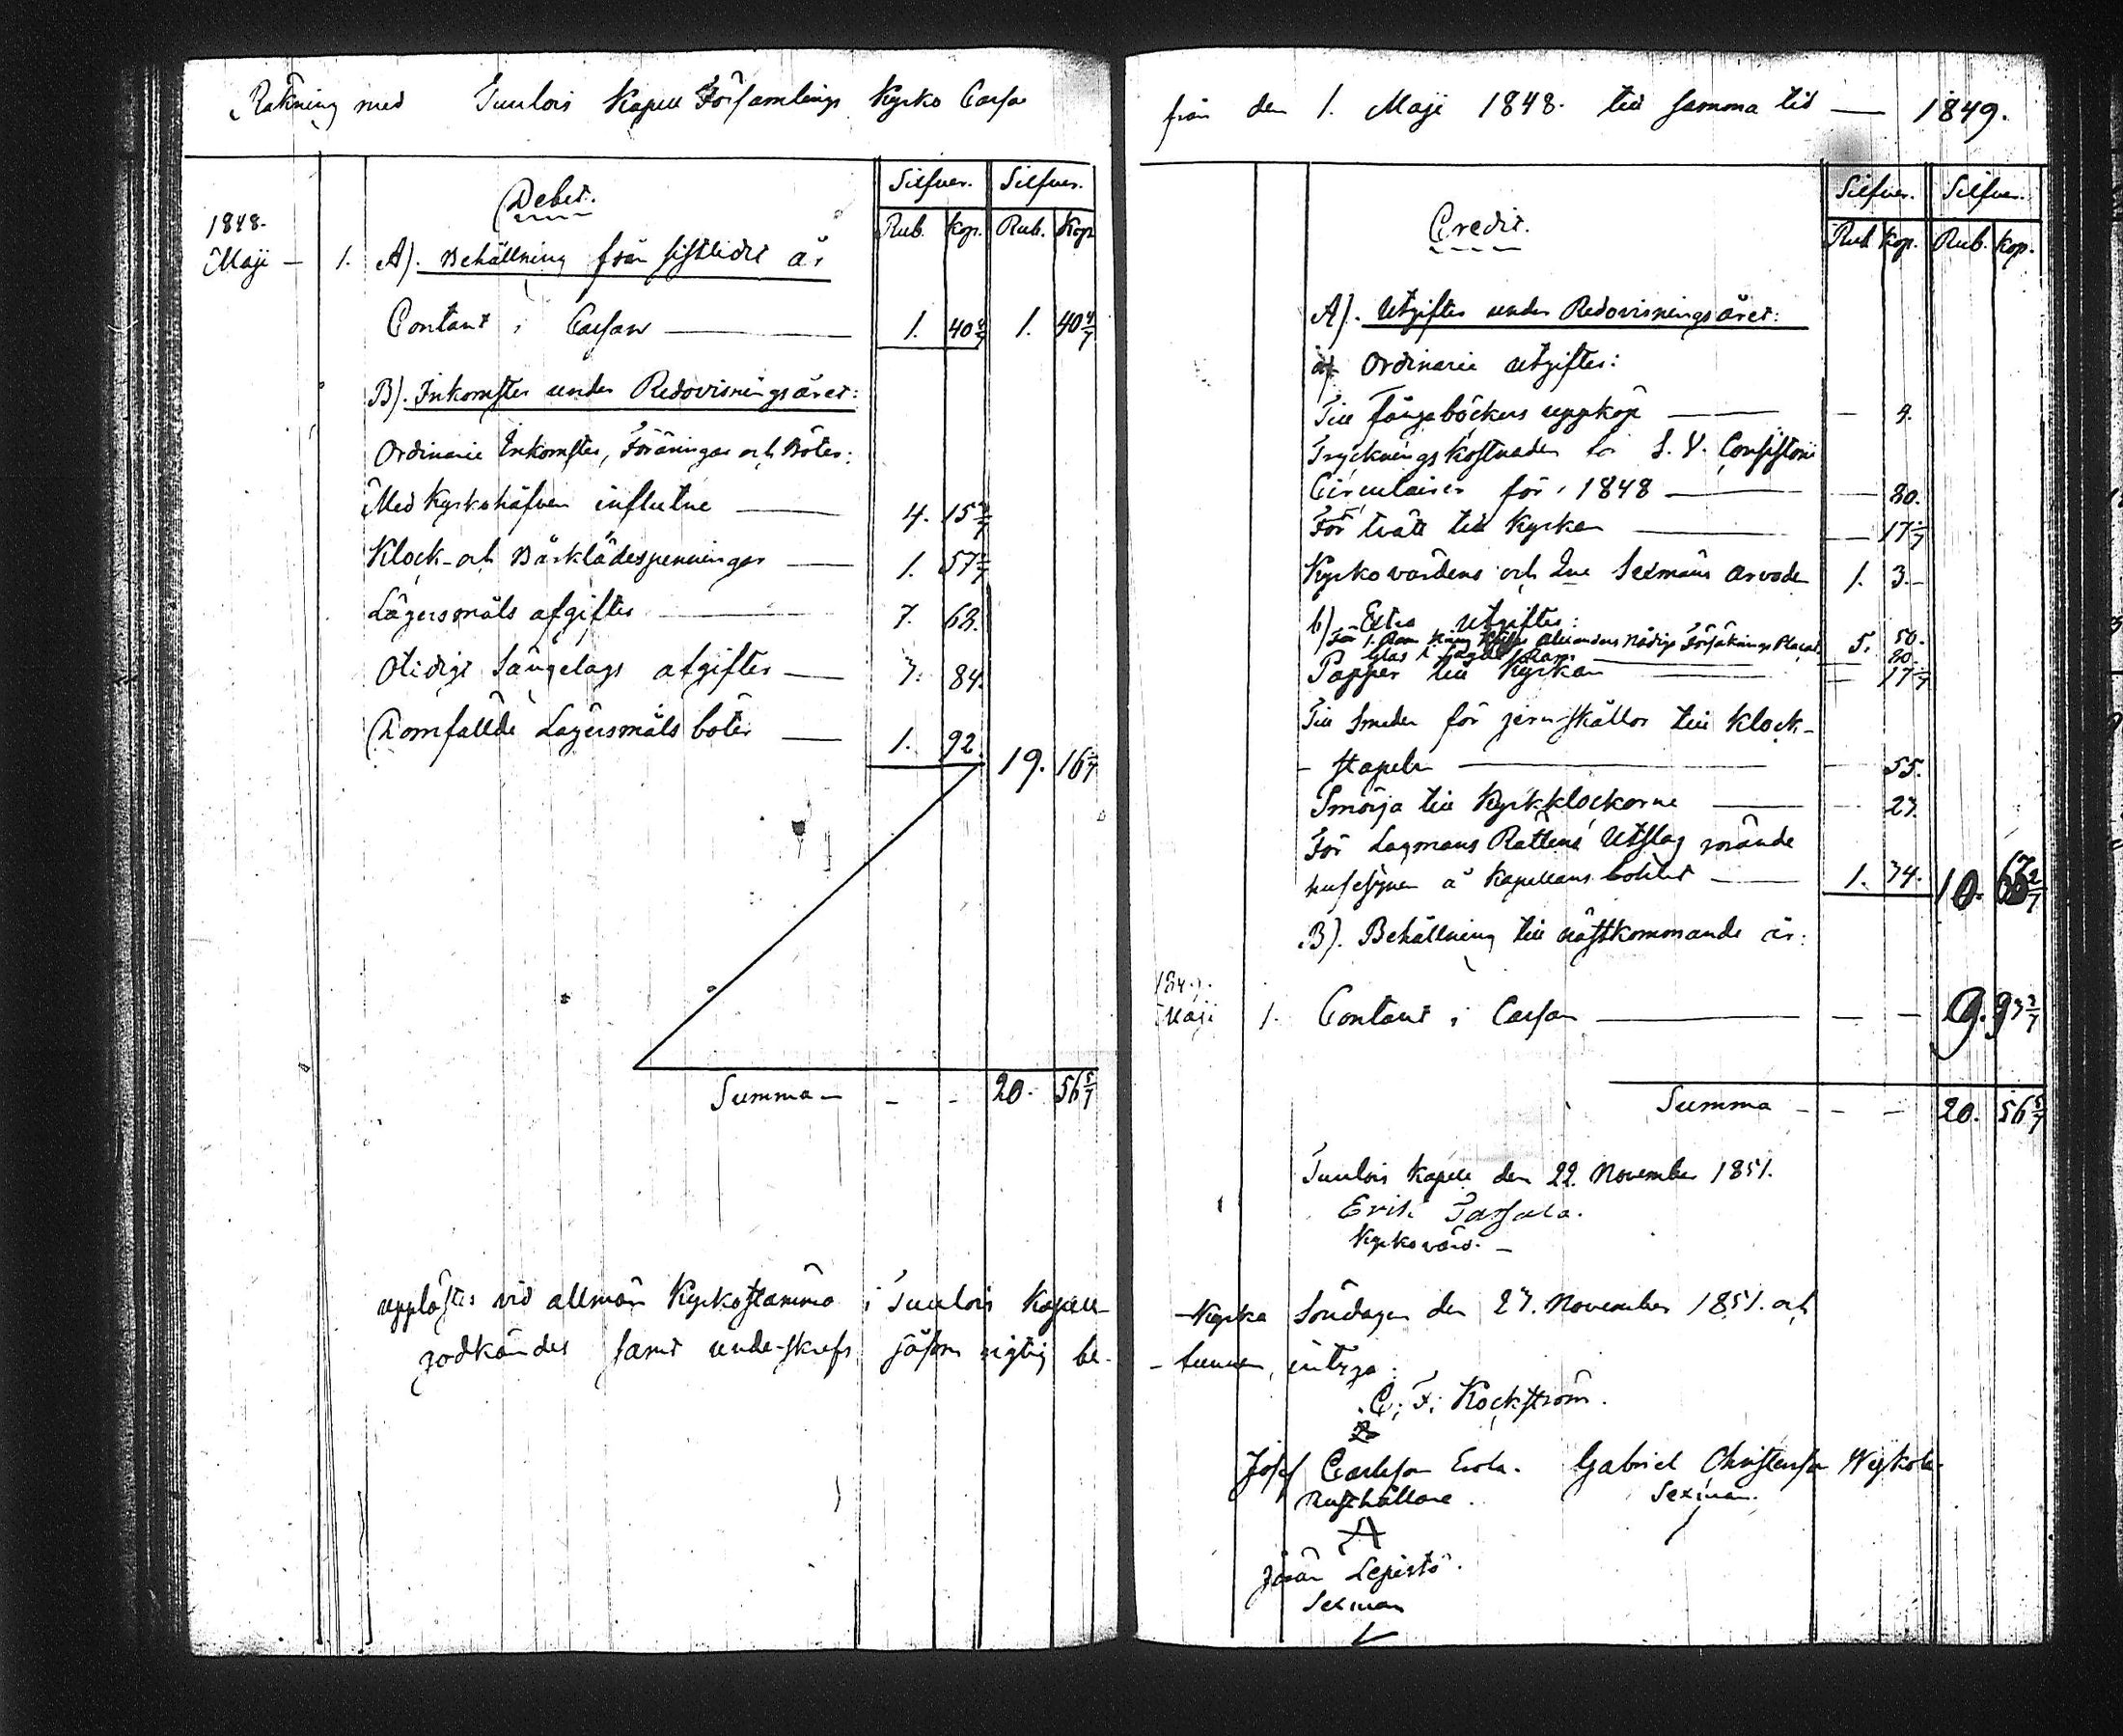 Räkning med Tuulois Kapell Församlings Kyrko Cassa
Debet.
Silfver. Silfver.
Rub. Kop. Rub. Kop.
1848.
Maji — 1. A). Behållning från sistledit år
Contant i Cassan — 1. 40 4/7 1. 40 4/7
B). Inkomster under Redovisningsåret:
Ordinarie Inkomster, Föräringar och Böter:
Med Kyrkohåfven influtne — 4. 15
Klock- och Bårklädespenningar — 1. 57
Lägersmåls afgifter — 7. 68.
Otidigt Sängelags afgifter — 3. 84.
Domfällde Lägersmåls böter — 1. 92. 19. 16 1/7
Summa — - - 20. 56 5/7
upplästes vid allmän Kyrkostämma i Tuulois Kapell
godkändes samt underskrefs såsom rigtig be-
från den 1. Maji 1848. till samma tid — 1849.
Credit.
Silfver. Silfver.
Rub. Kop. Rub. Kop.
A). Utgifter under Redovisningsåret:
a) Ordinarie utgifter:
Till fångaböckers uppköp — - 9.
Tryckningskostnader för S. V. Consistorii
Circulairer för 1848 — 80.
För tvätt till Kyrkan — 17 1/7
Kyrkovärdens och Sexmäns arvode 1. 3.-
b) Extra utgifter:
Alexanders Nådiga Försäknings Placat 5. 50.
Glas 20.
Papper till Kyrkan — 17 1/7
Till Smeden för jern-skållor till Klock-
- stapeln — 55.
Smörja till Kyrkklockorne — 27.
För Lagmans Rättens Utslag rörande
husesynen å Kapellans bohlet — 1. 74. 10. 63 2/7
B). Behållning till nästkommande år:
1849.
Maji 1. Contant i Cassan — — — 9. 93 3/7
Summa - - - 20. 56 5/7
Tuulois Kapell den 22. November 1851.
Erik
Kyrkovärd. —
-Kyrka Söndagen den 27. November 1851. och
- funnen, intyga:
C. F. Kockström.
Josef Carlsson Erola. Gabriel Christersson
Rusthållare. Sexman.
Jöran Lepistö.
Sexman